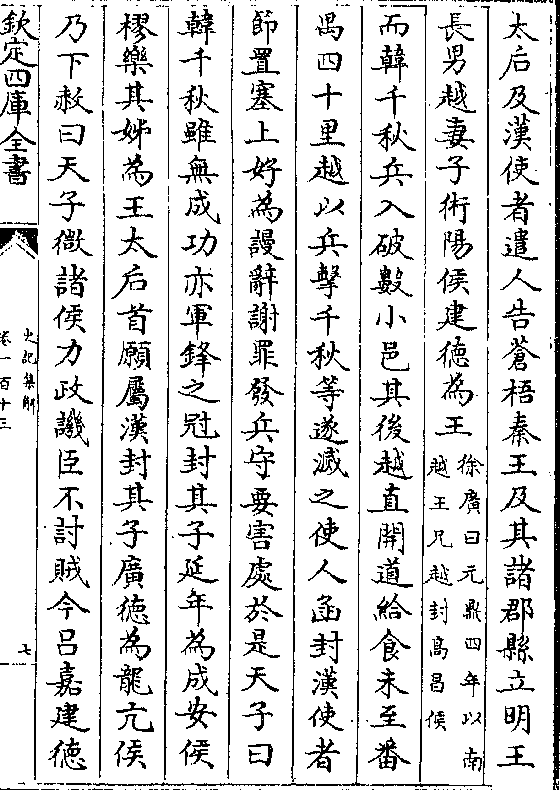 太后及漢使者遣人告蒼梧秦王及其諸郡縣立明王
長男越妻子術陽侯建徳為王
徐廣曰元鼎四年以南
越王兄越封髙昌侯
而韓千秋兵入破數小邑其後越直開道給食未至番
禺四十里越以兵擊千秋等遂滅之使人函封漢使者
節置塞上好為謾辭謝罪發兵守要害處於是天子曰
韓千秋雖無成功亦軍鋒之冠封其子延年為成安侯
樛樂其姊為王太后首願屬漢封其子廣徳為龍亢侯
乃下赦曰天子微諸侯力政譏臣不討賊今呂嘉建徳
欽定四庫全書
史記集解
卷一百十三
七